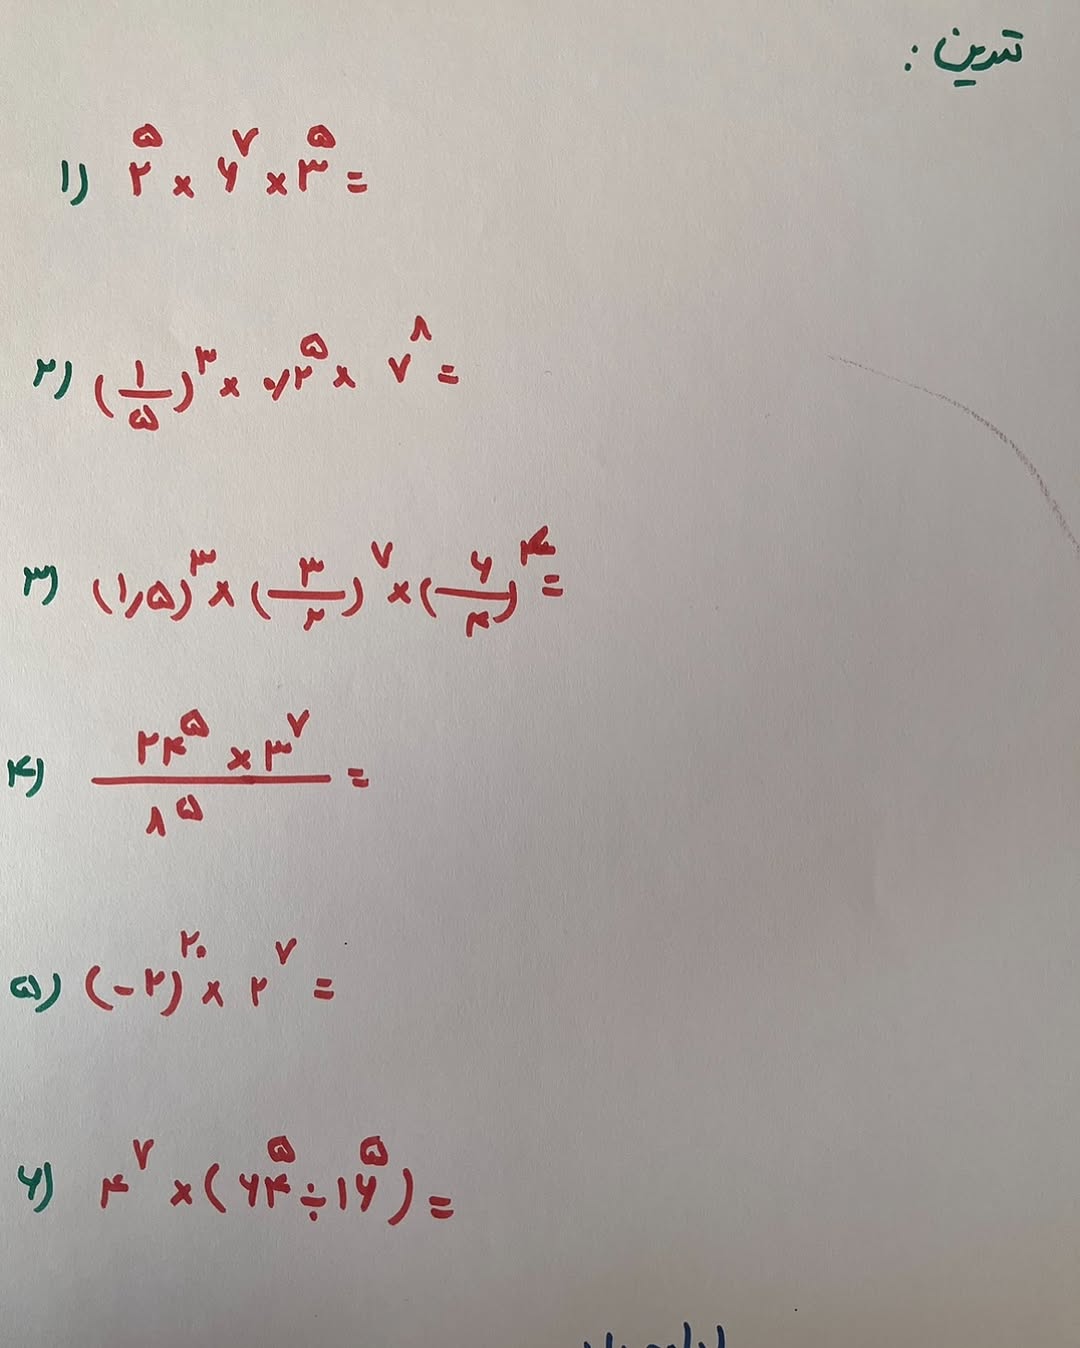 تمرین :
۱) ۲^۵ × ۶^۷ × ۳^۵ =
۲) (۱/۵)^۳ × ۰٫۲^۵ × ۷^۸ =
۳) (۱٫۵)^۳ × (۳/۲)^۷ × (۶/۴)^۴ =
۴) (۲۴^۵ × ۳^۷)/۸^۵ =
۵) (-۲)^۲۰ × ۲^۷ =
۶) ۴^۷ × (۶۴^۵ ÷ ۱۶^۵) =